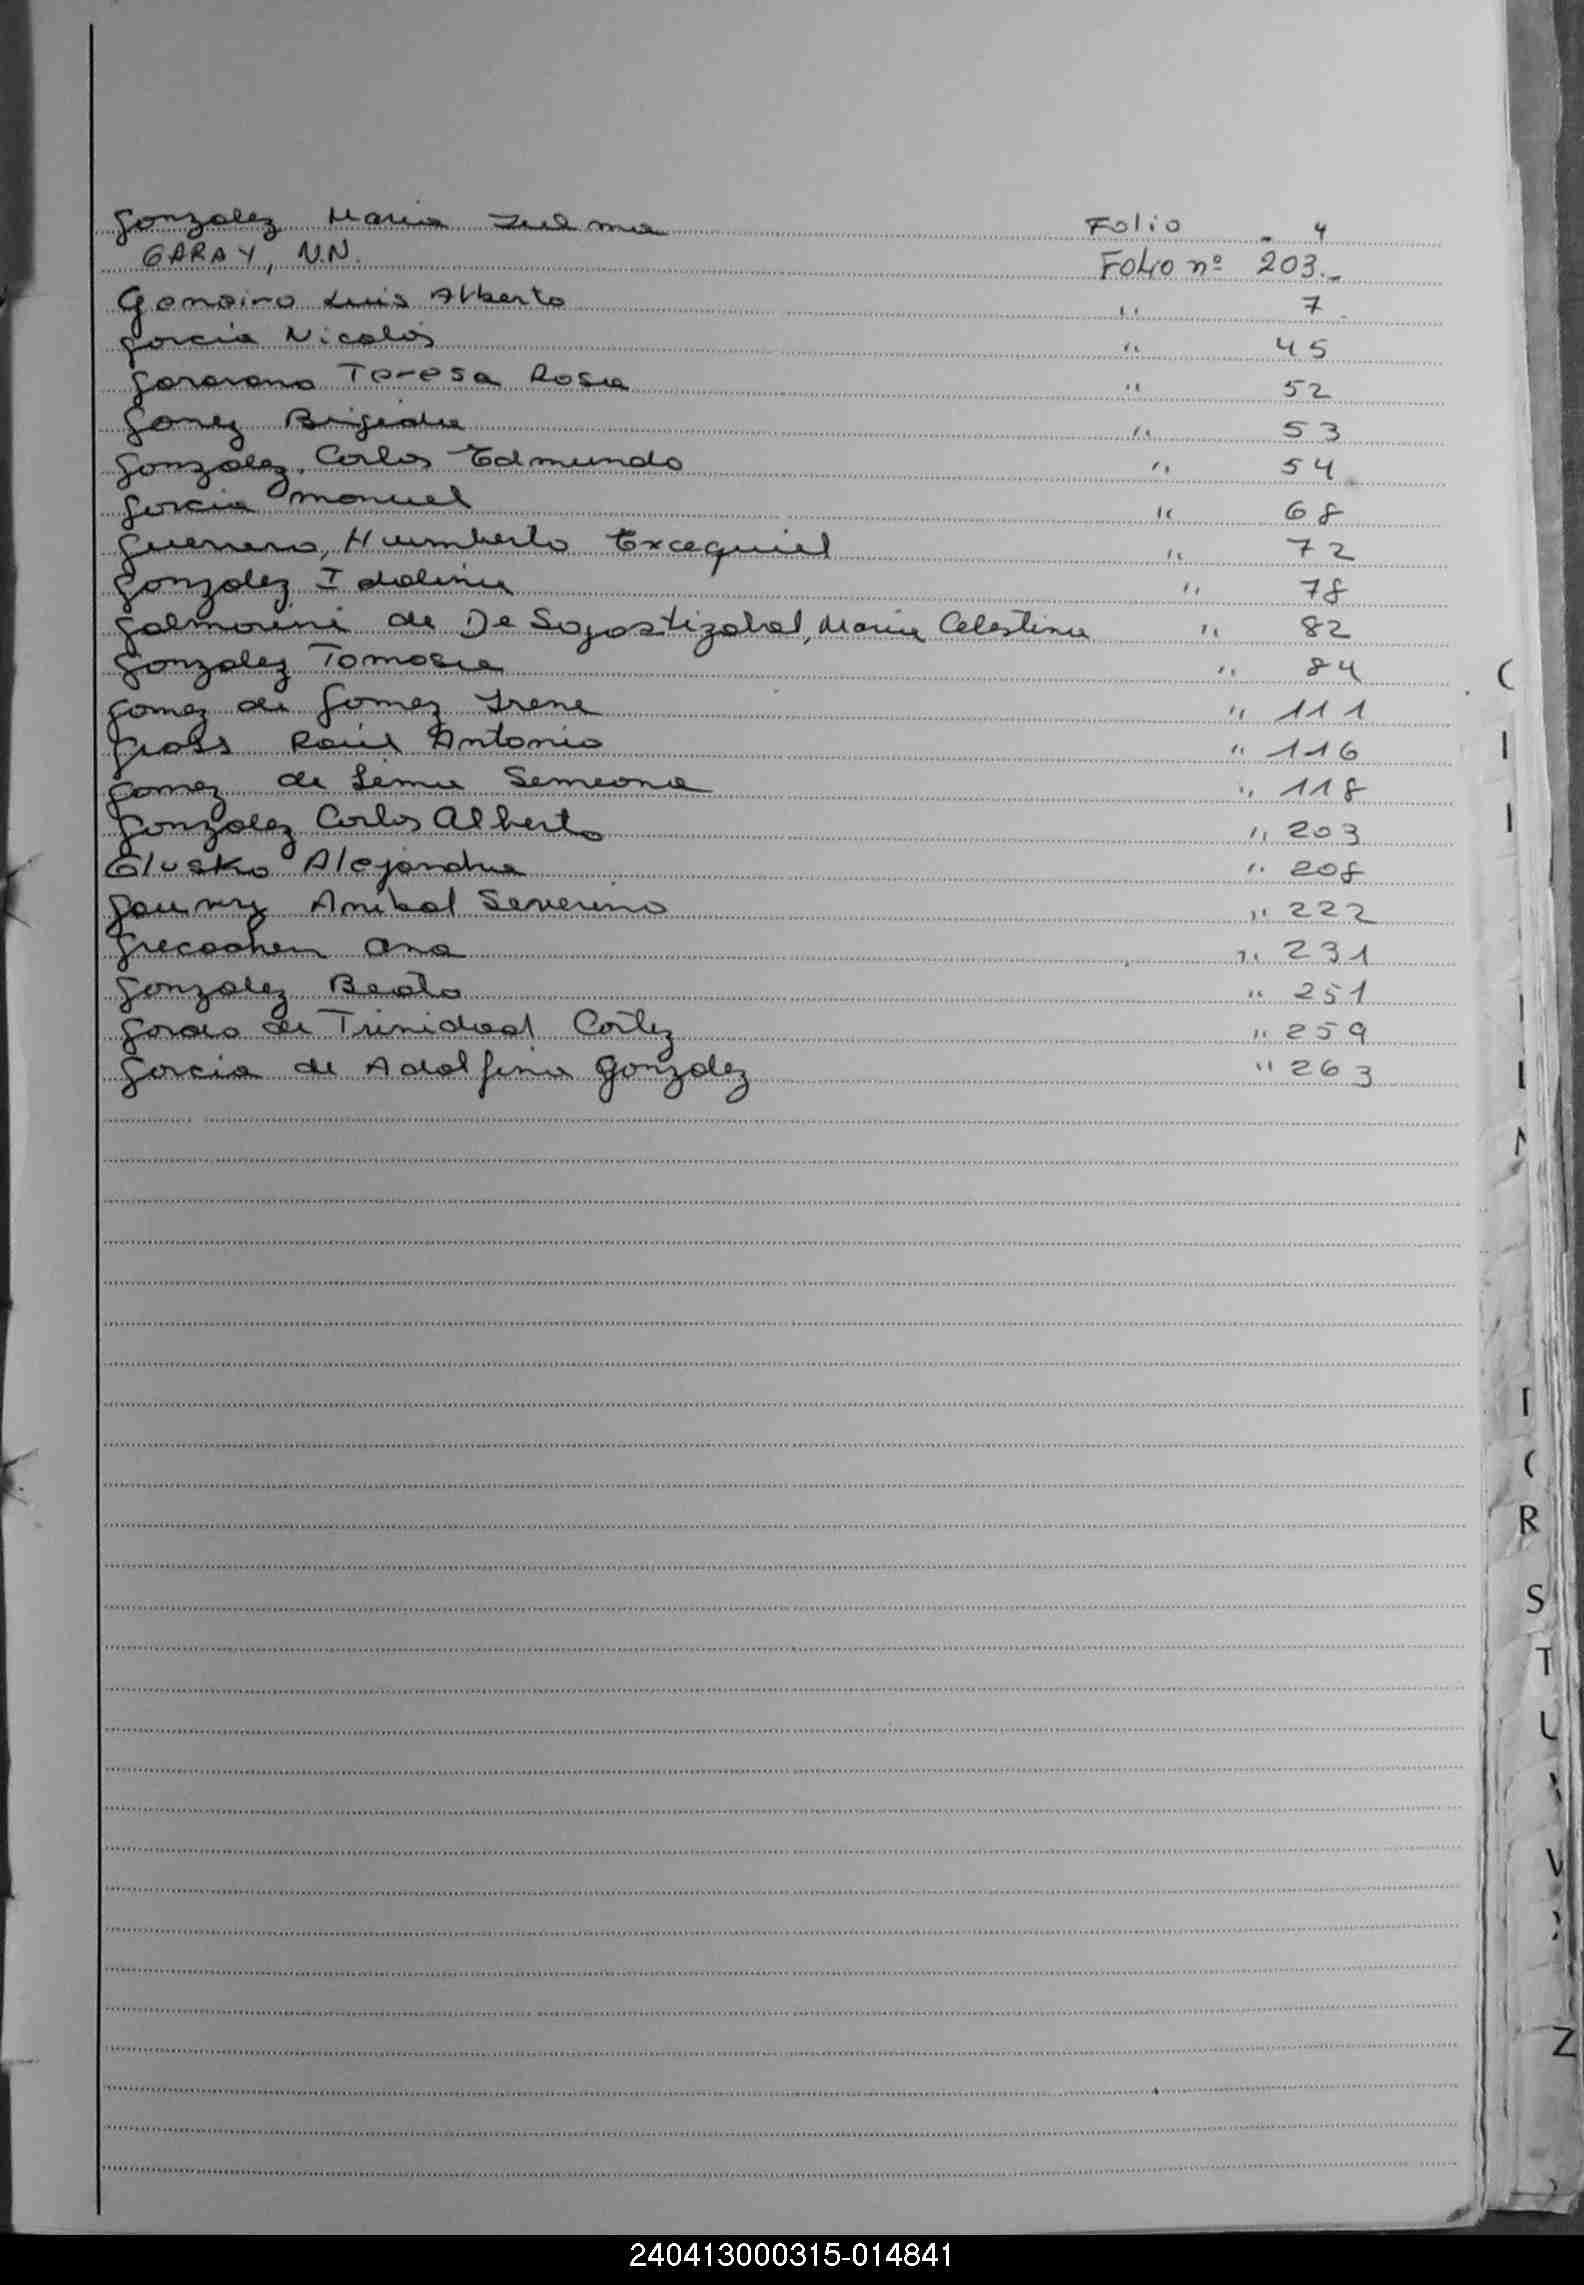 Gonzalez Maria Zulma Folio - 4
GARAY, N.N. Folio nº 203.-
Luis Alberto " 7
Garcia Nicolás " 45
Teresa Rosa " 52
Brigida " 53
Gonzalez, Carlos Edmundo " 54
Garcia Manuel " 68
Guerrero, Humberto Excequiel " 72
Gonzalez Idolina " 78
Galmarini de De Sogastizabal, Maria Celestina " 82
Gonzalez Tomasa " 84
Gomez de Gomez Irene " 111
Gross Raúl Antonio " 116
Gomez de Lema Semeona " 118
Gonzalez Carlos Alberto " 203
Glusko Alejandra " 208
Anibal Severino " 222
Ana " 231
Gonzalez Beato " 251
de Trinidad Cortez " 259
Garcia de Adolfina Gonzalez " 263
R
S
T
U
V
Z
240413000315-014841